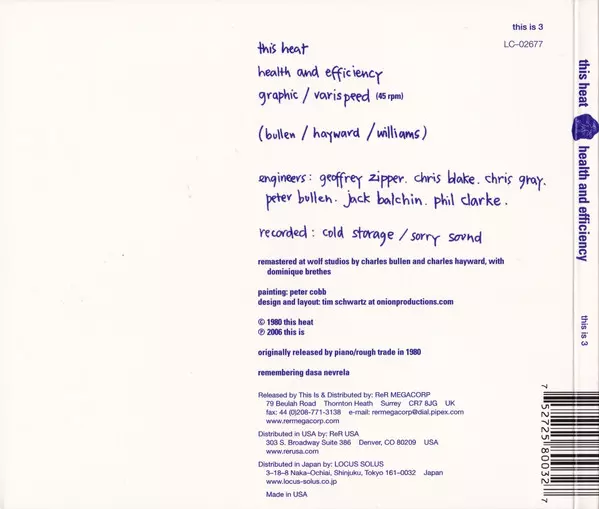 this is 3
LC–02677
this heat
health and efficiency
graphic / varispeed (45 rpm)
(bullen / hayward / williams)
engineers: geoffrey zipper. chris blake. chris gray.
peter bullen. jack balchin. phil clarke.
recorded: cold storage / sorry sound
remastered at wolf studios by charles bullen and charles hayward, with
dominique brethes
painting: peter cobb
design and layout: tim schwartz at onionproductions.com
© 1980 this heat
℗ 2006 this is
originally released by piano/rough trade in 1980
remembering dasa nevrela
Released by This Is & Distributed by: ReR MEGACORP
79 Beulah Road Thornton Heath Surrey CR7 8JG UK
fax: 44 (0)208-771-3138 e-mail: rermegacorp@dial.pipex.com
www.rermegacorp.com
Distributed in USA by: ReR USA
303 S. Broadway Suite 386 Denver, CO 80209 USA
www.rerusa.com
Distributed in Japan by: LOCUS SOLUS
3–18–8 Naka–Ochiai, Shinjuku, Tokyo 161–0032 Japan
www.locus-solus.co.jp
Made in USA
this heat health and efficiency this is 3
7 52725 80032 7